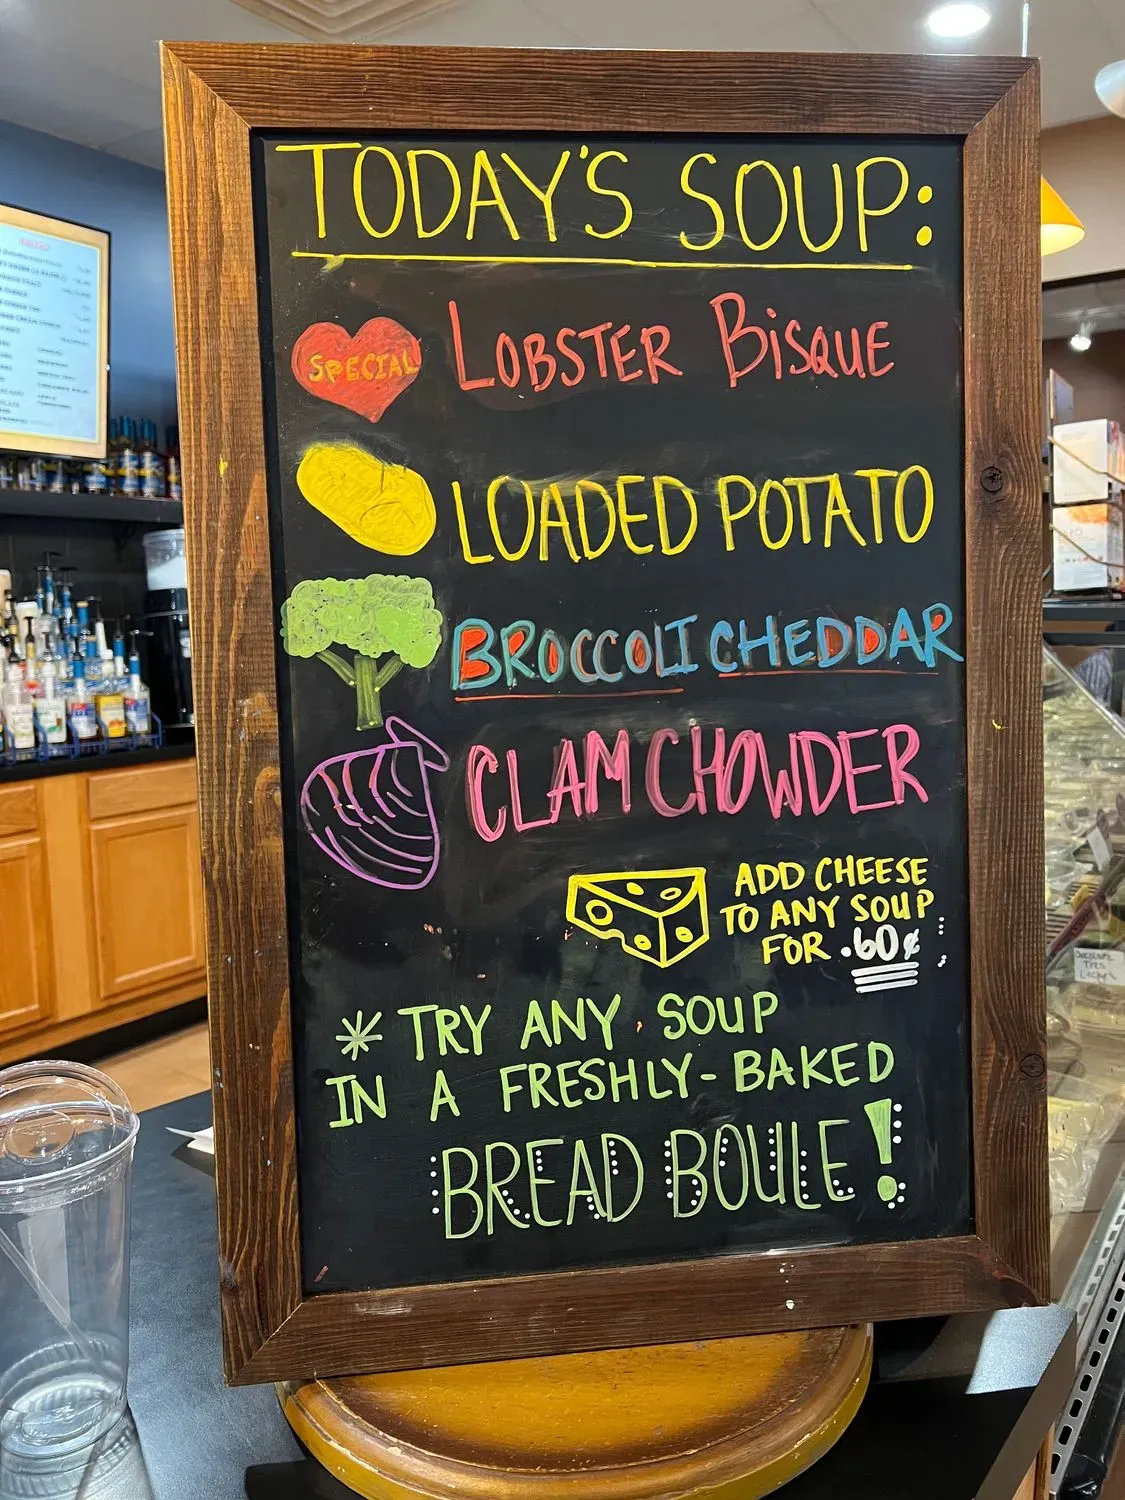 TODAY'S SOUP:
SPECIAL
LOBSTER BISQUE
LOADED POTATO
BROCCOLI CHEDDAR
CLAM CHOWDER
ADD CHEESE
TO ANY SOUP
FOR .60¢
* TRY ANY SOUP
IN A FRESHLY-BAKED
BREAD BOULE!